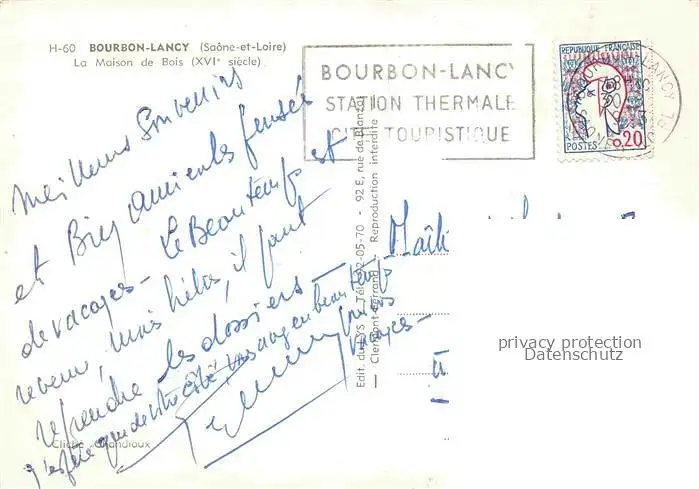 H-60 BOURBON-LANCY (Saône-et-Loire)
La Maison de Bois (XVIe siècle)
BOURBON-LANCY
STATION THERMALE
CITÉ TOURISTIQUE
REPUBLIQUE FRANÇAISE
POSTES 0,20
Meilleurs Souvenirs
et Bien amicales pensées
de vacances - Le Beau temps est
revenu, mais hélas, il faut
reprendre les dossiers -
j'espère que de votre côté, vous avez eu beau temps
pour vos
vacances -
Edit. du LYS - Tél. 92-05-70 - 92 E, rue de Blanzat
Clermont-Ferrand. Reproduction interdite
Cliché Chandioux
privacy protection
Datenschutz